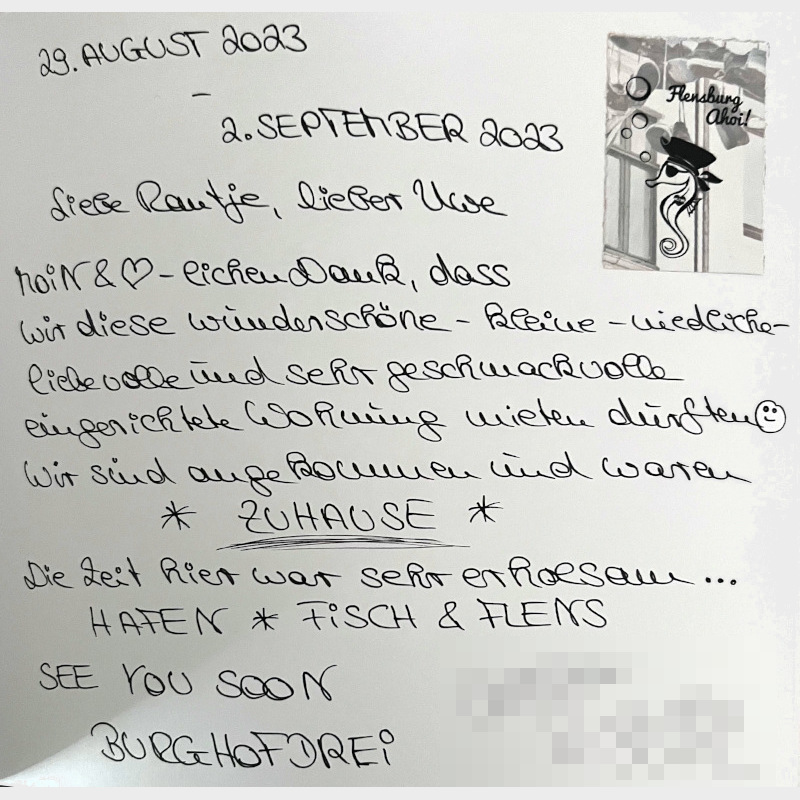 29. AUGUST 2023
–
2. SEPTEMBER 2023
Flensburg
Ahoi!
Liebe Rautje, lieber Uwe
MOIN & ♡-lichen Dank, dass
wir diese wunderschöne - kleine - niedliche -
liebevolle und sehr geschmackvolle
eingerichtete Wohnung mieten durften ☺
Wir sind angekommen und waren
* ZUHAUSE *
Die Zeit hier war sehr erholsam...
HAFEN * FISCH & FLENS
SEE YOU SOON
BURGHOFDREI